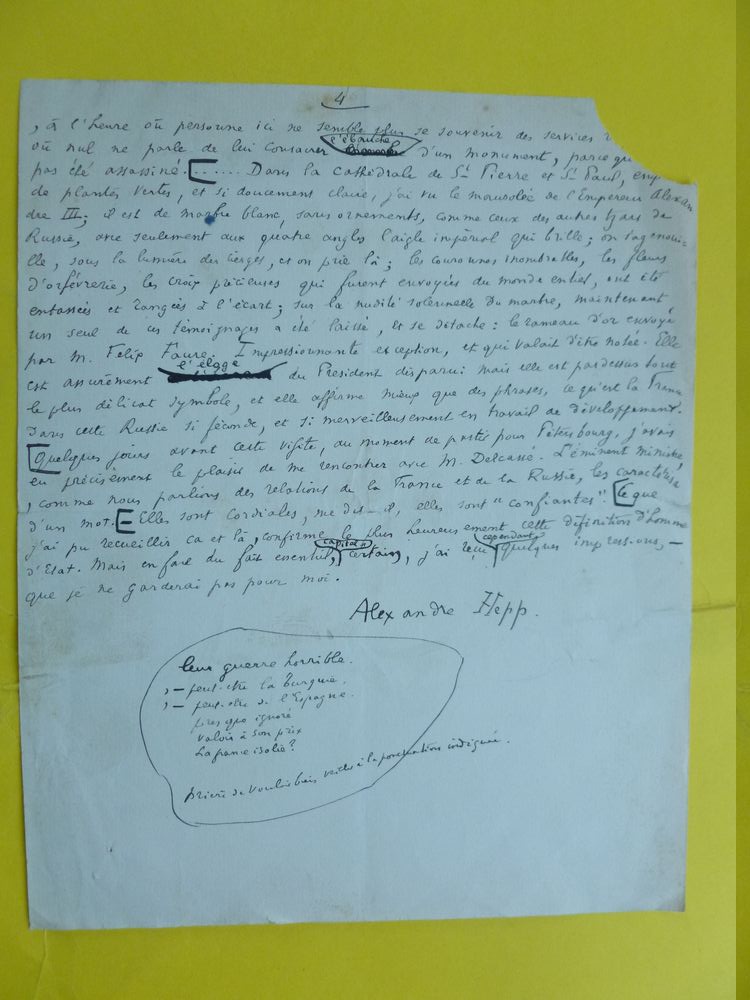 4
, à l'heure où personne ici ne semble plus se souvenir des services
où nul ne parle de lui consacrer l'ébauche d'un monument, parce qu
pas été assassiné. [...... Dans la cathédrale de St Pierre et St Paul, emp
de plantes vertes, et si doucement claire, j'ai vu le mausolée de l'Empereur Alexan
dre III; il est de marbre blanc, sans ornements, comme ceux des autres tzars de
Russie, avec seulement aux quatre angles l'aigle impérial qui brille; on s'agenouil-
lle, sous la lumière des cierges, et on prie là; les couronnes inombrables, les fleurs
d'orfévrerie, les croix précieuses qui furent envoyées du monde entier, ont été
entassées et rangées à l'écart; sur la nudité solennelle du marbre, maintenant
un seul de ces témoignages a été laissé, et se détache: le rameau d'or envoyé
par M. Felix Faure. Impressionnante exception, et qui valait d'être notée. Elle
est assurément l'éloge du Président disparu: mais elle est pardessus tout
le plus délicat symbole, et elle affirme mieux que des phrases, ce qu'est la France
dans cette Russie si féconde, et si merveilleusement en travail de développement.
[Quelques jours avant cette visite, au moment de partir pour Pétersbourg, j'avais
eu précisément le plaisir de me rencontrer avec M. Delcassé. L'éminent ministre,
, comme nous parlions des relations de la France et de la Russie, les caractérisa
d'un mot. [– Elles sont cordiales, me dis-il, elles sont "confiantes" [Ce que
j'ai pu recueillir ça et là, confirme le plus heureusement cette définition d'homme
d'Etat. Mais en face du fait essentiel, capital, certain, j'ai reçu cependant quelques impressions, –
que je ne garderai pas pour moi.
Alexandre Hepp.
leur guerre horrible.
, – peut-être la Turquie.
, – peut-être de l'Espagne.
presque ignoré
valois à son prix
La france isolée?
Prière de vouloir bien veiller à la ponctuation indiquée.